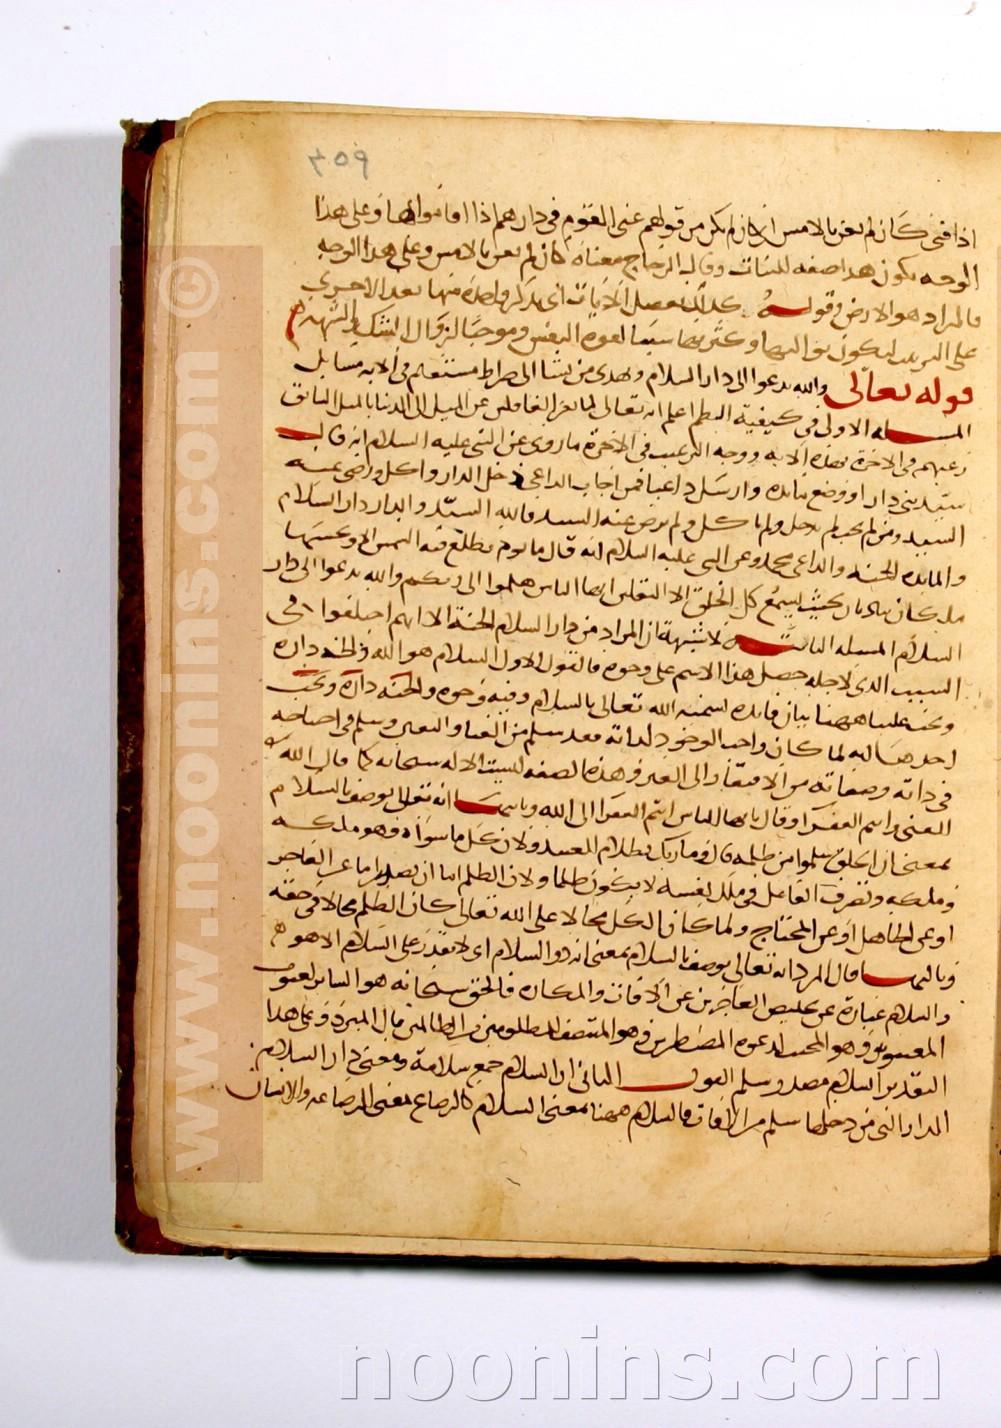 ٤٥٩
اذا فنى كان لم يغن بالامس اى كان لم يكن من قولهم غنى القوم فى دارهم اذا اقاموا بها وعلى هذا
الوجه يكون هذا صفه للنبات وقال الزجاج معناه كان لم يعمر بالامس وعلى هذا الوجه
فالمراد هو الارض وقوله كذلك نفصل الايات اى نذكر واحدة منها بعد الاخرى
على الترتيب ليكون تواليها وكثرتها سببا لقوه اليقين وموجبا لزوال الشك والشبهه
قوله تعالى والله يدعوا الى دار السلام ويهدى من يشا الى صراط مستقيم فى الايه مسايل
المسله الاولى فى كيفية النظم اعلم انه تعالى لما نفر الغافلين عن الميل الى الدنيا بالمثل السابق
رغبهم فى الاخرة بهذه الايه ووجه الترغيب فى الاخرة ما روى عن النبى عليه السلام انه قال
سيد بنى دارا ووضع مايده وارسل داعيا فمن اجاب الداعى دخل الدار واكل ورضى عنه
السيد ومن لم يجب لم يدخل ولم ياكل ولم يرض عنه السيد فالله السيد والدار دار السلام
والمايده الجنه والداعى محمد وعن النبى عليه السلام انه قال ما يوم تطلع فيه الشمس الا وبجنبيها
ملكان يناديان بحيث يسمع كل الخلق الا الثقلين ايها الناس هلموا الى ربكم والله يدعوا الى دار
السلام المسله الثانيه لا شبهة ان المراد من دار السلام الجنة الا انهم اختلفوا فى
السبب الذى لاجله حصل هذا الاسم على وجوه فالقول الاول السلام هو الله والجنه داره
ويجب علينا ههنا بيان فايده تسميه الله تعالى بالسلام وفيه وجوه والجنه داره ويجب
احدها انه لما كان واجب الوجود لذاته فقد سلم من الفنا والتغير وسلم فى احتياجه
فى ذاته وصفاته من الافتقار الى الغير وهذه الصفه ليست الا له سبحانه كما قال الله
الغنى وانتم الفقرا وقال يا ايها الناس انتم الفقرا الى الله وثانيها انه تعالى يوصف بالسلام
بمعنى ان الخلق سلموا من ظلمه قال وما ربك بظلام للعبيد ولان كل ما سواه فهو ملكه
وملكه وتصرف الفاعل فى ملك نفسه لا يكون ظلما ولان الظلم انما ان يصدر اما عن العاجز
او عن الجاهل او عن المحتاج ولما كان الكل محالا على الله تعالى كان الظلم محالا فى حقه
وثالثها قال المبرد انه تعالى يوصف بالسلام بمعنى انه ذو السلام اى لا يقدر على السلام الا هو
والسلام عبارة عن تخليص العاجزين عن الافات والمكاره فالحق سبحانه هو الساتر لعيوب
المعيوبين وهو المجيب لدعوه المضطرين وهو المنتصف للمظلومين من الظالمين قال المبرد وعلى هذا
التقدير السلام مصدر سلم القول الثانى ان السلام جمع سلامة ومعنى دار السلام
الدار التى من دخلها سلم من الافات فالسلام ههنا بمعنى السلام كالرضاع بمعنى الرضاعه والانسان
© www.noonins.com
noonins.com